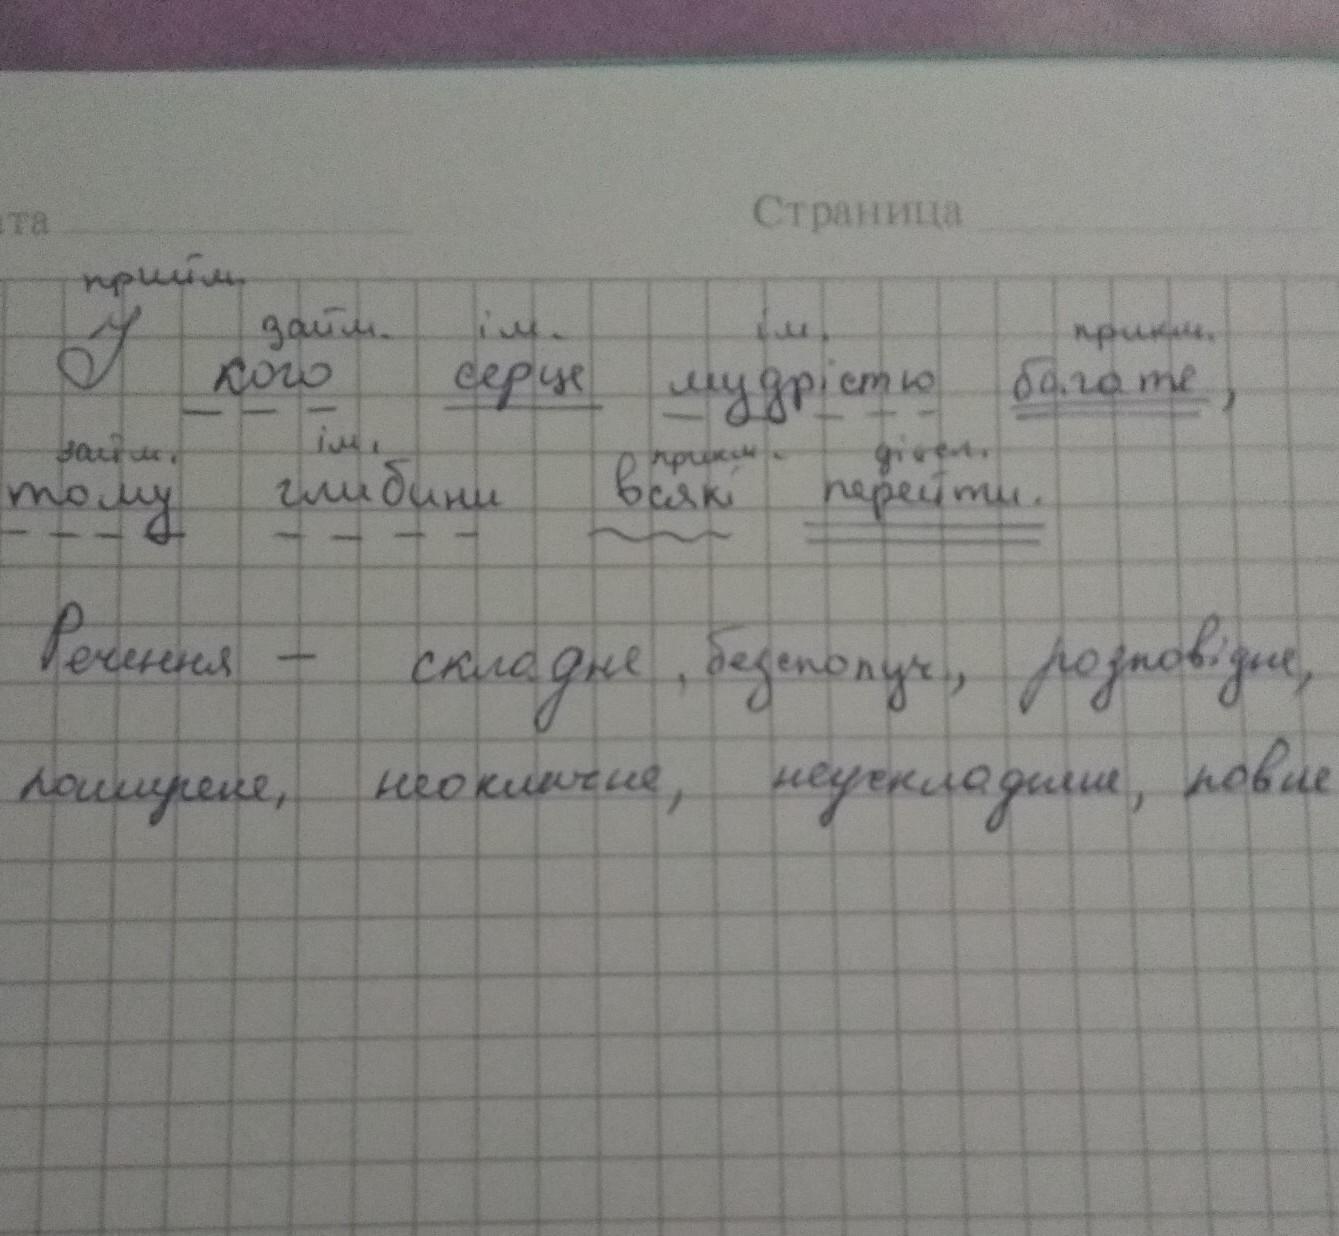 ата Страница
прийм.
займ. ім. ім. прикм.
У кого серце мудрістю багате,
займ. ім. прикм. дієсл.
тому глибини всякі перейти.
Речення – складне, безсполуч., розповідне,
поширене, неокличне, неускладнене, повне